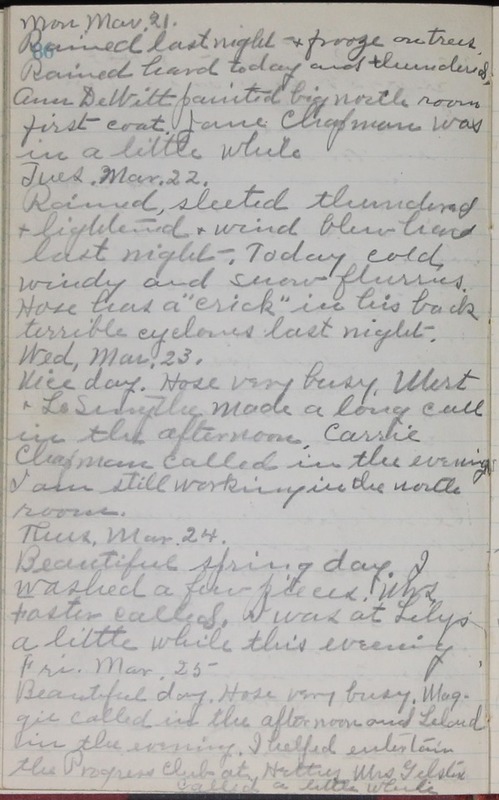 Mon Mar. 21.
86
Rained last night & frooze on trees.
Rained hard today and thundered,
Ann DeWitt painted big north room
first coat. Jane Chapman was
in a little while
Tues. Mar. 22.
Rained, sleeted thundered
& lightened & wind blew hard
last night. Today cold,
windy and snow flurries.
Hose has a "crick" in his back
terrible cyclones last night.
Wed, Mar. 23.
Nice day. Hose very busy.
& made a long call
in the afternoon. Carrie
Chapman called in the evening
I am still working in the north
room.
Thus, Mar. 24.
Beautiful spring day. I
washed a few pieces. Mrs.
Foster called. I was at Lilys
a little while this evening
Fri. Mar. 25
Beautiful day. Hose very busy. Mag-
gie called in the afternoon and Leland
in the evening. I helped entertain
the Progress Club at Mrs
called a little while